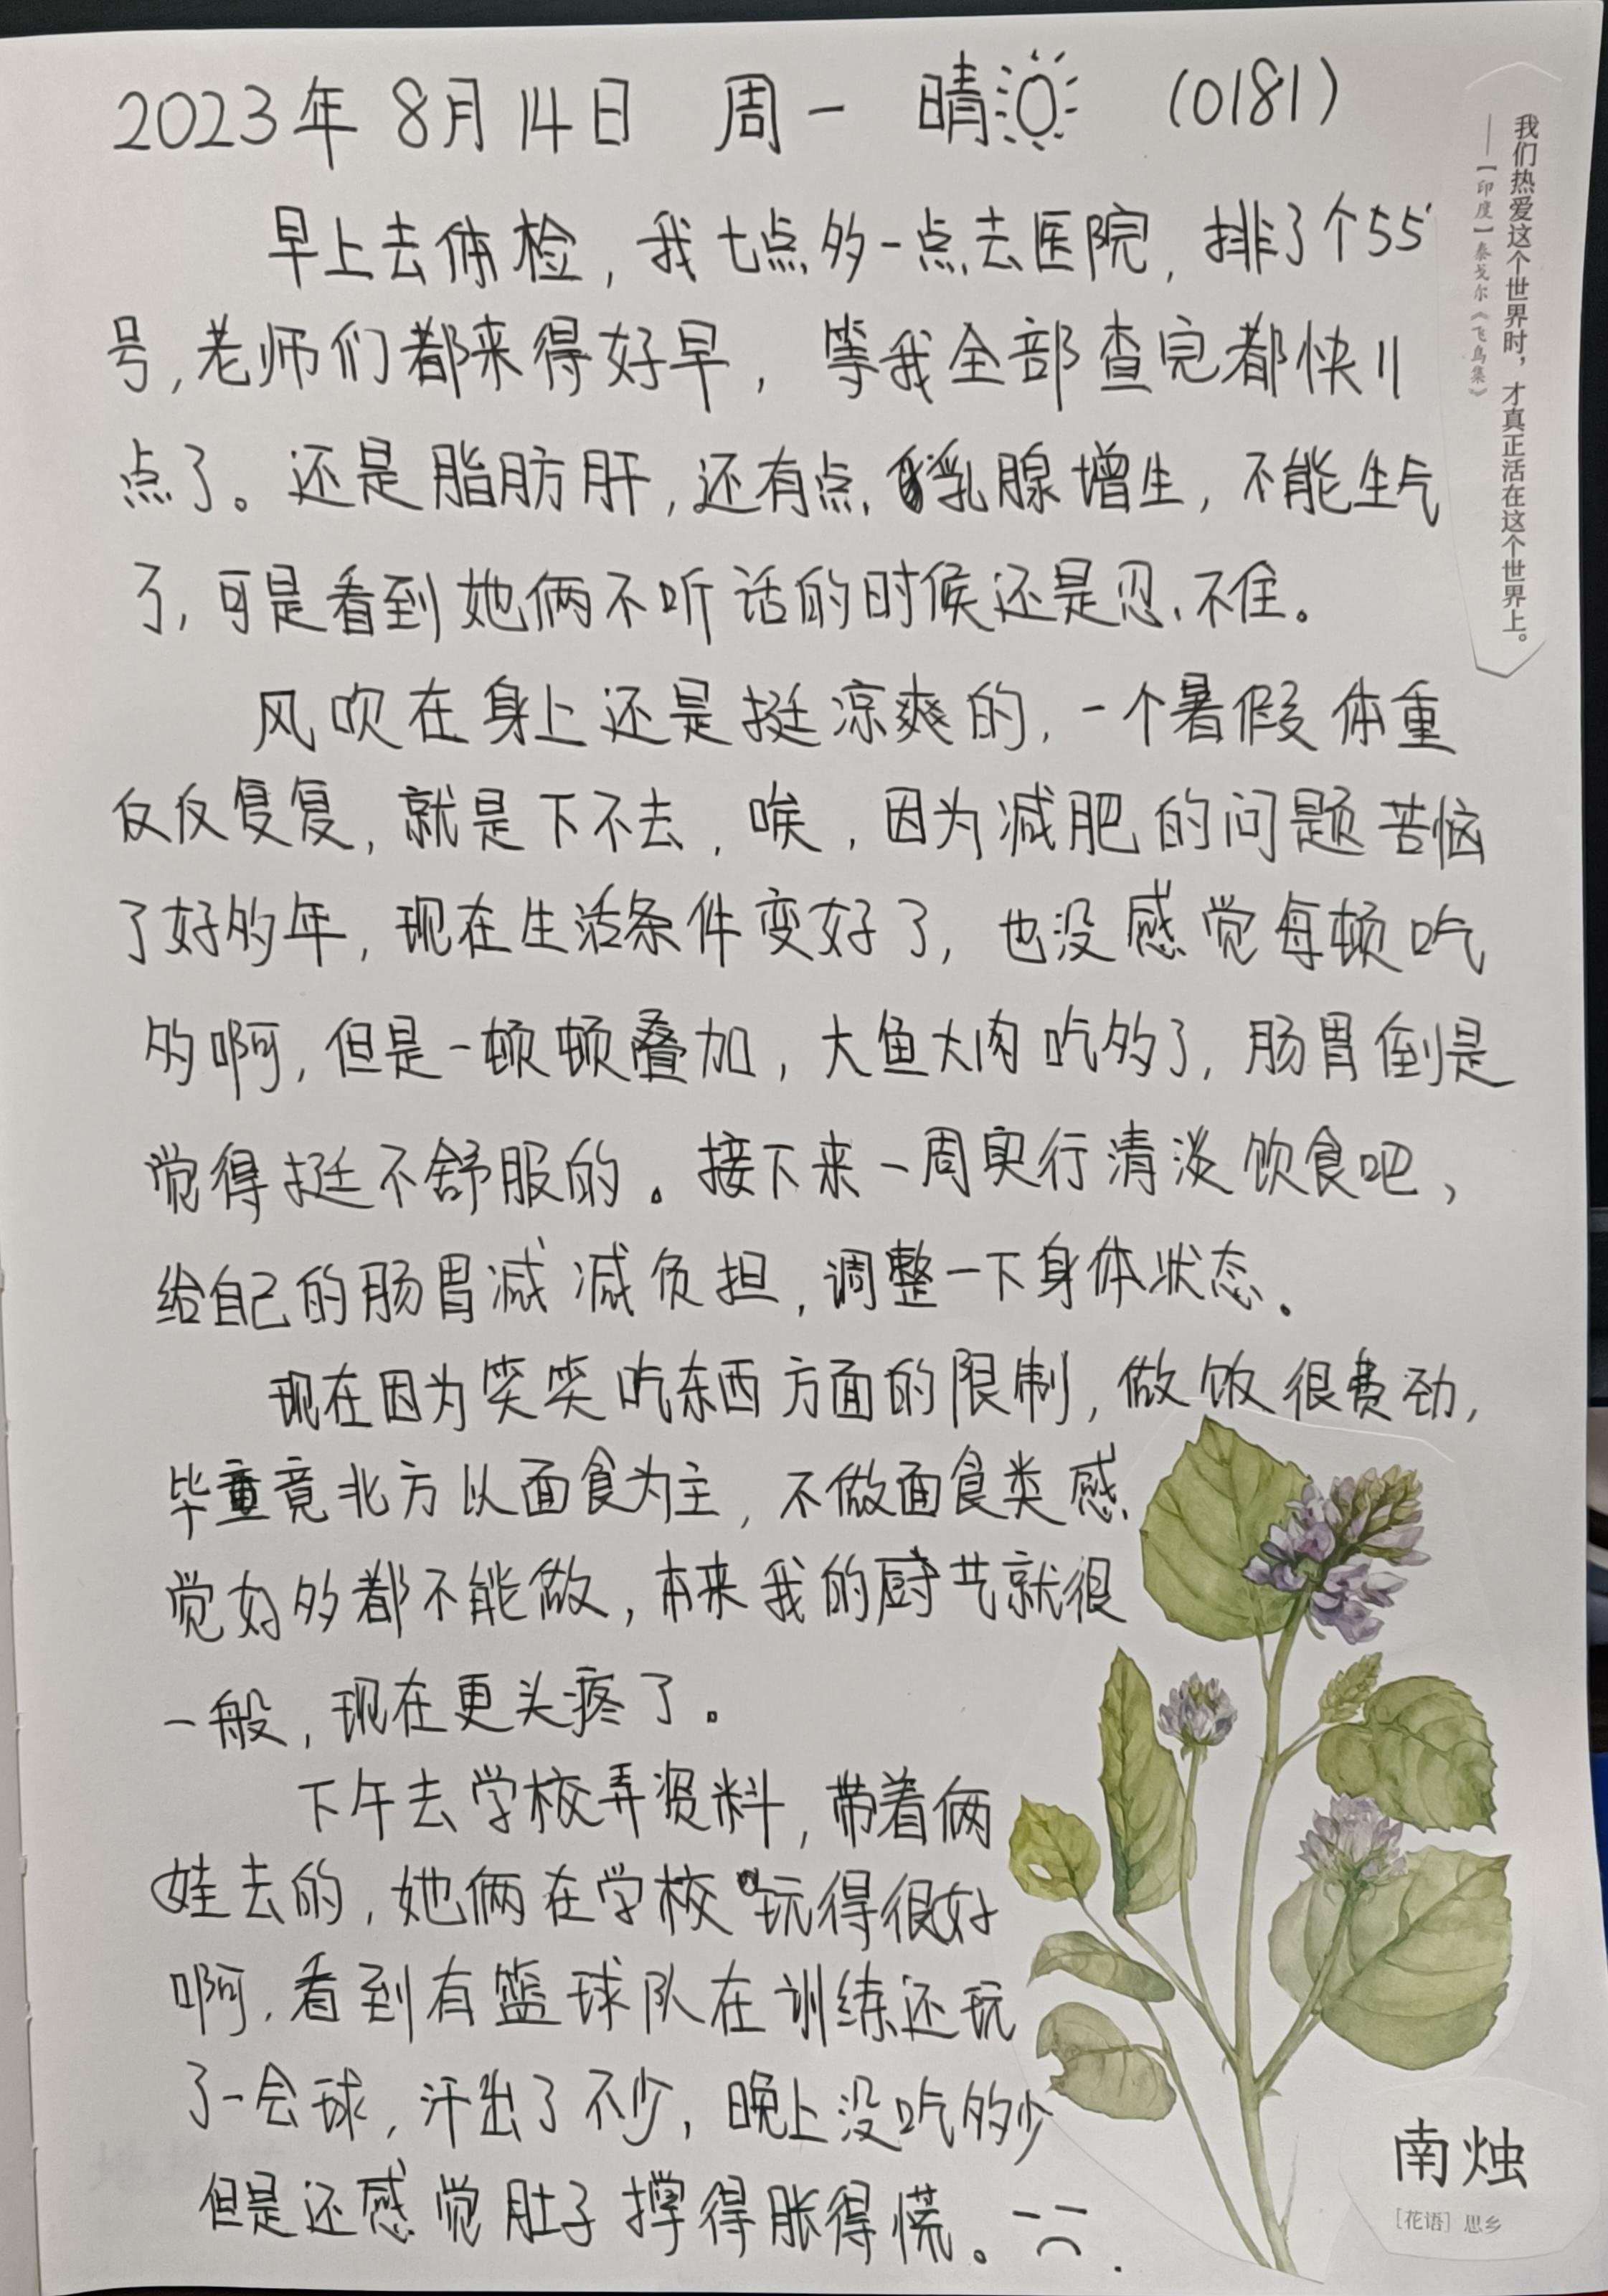 2023年8月14日 周一 晴 (0181)
早上去体检，我七点多一点去医院，排了个55
号，老师们都来得好早，等我全部查完都快11
点了。还是脂肪肝，还有点乳腺增生，不能生气
了，可是看到她俩不听话的时候还是忍不住。
风吹在身上还是挺凉爽的，一个暑假体重
反反复复，就是下不去，唉，因为减肥的问题苦恼
了好多年，现在生活条件变好了，也没感觉每顿吃
多啊，但是一顿顿叠加，大鱼大肉吃多了，肠胃倒是
觉得挺不舒服的。接下来一周实行清淡饮食吧，
给自己的肠胃减减负担，调整一下身体状态。
现在因为笑笑吃东西方面的限制，做饭很费劲，
毕竟北方以面食为主，不做面食类感
觉好多都不能做，本来我的厨艺就很
一般，现在更头疼了。
下午去学校弄资料，带着俩
娃去的，她俩在学校玩得很好
啊，看到有篮球队在训练还玩
了一会球，汗出了不少，晚上没吃多少
但是还感觉肚子撑得胀得慌。
我们热爱这个世界时，才真正活在这个世界上。
——【印度】泰戈尔《飞鸟集》
南烛
[花语] 思乡